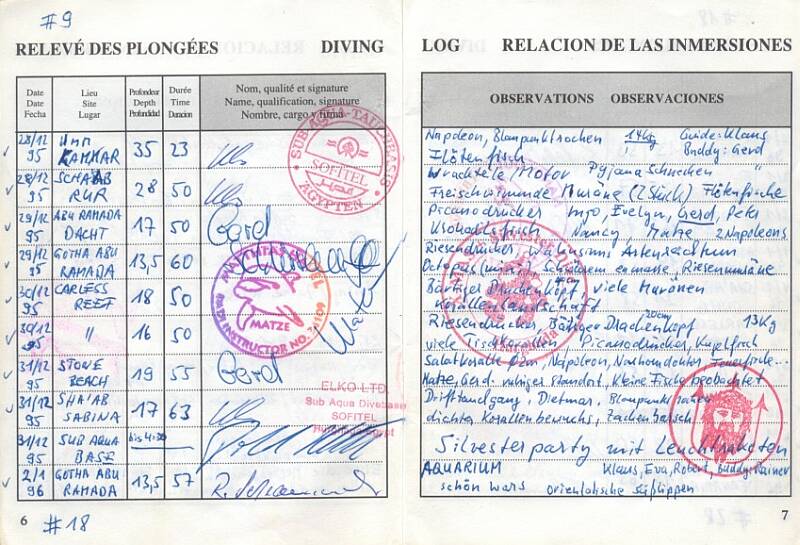 #9
RELEVÉ DES PLONGÉES DIVING
Date Date Fecha
Lieu Site Lugar
Profondeur Depth Profundidad
Durée Time Duracion
Nom, qualité et signature
Name, qualification, signature
Nombre, cargo y firma
28/12 95 Umm KAMMAR 35 23
28/12 95 SCHAAB RUR 28 50
29/12 95 ABU RAMADA DACHT 17 50 Gerd
29/12 95 GOTHA ABU RAMADA 13,5 60
30/12 95 CARLESS REEF 18 50
30/12 95 " 16 50
31/12 95 STONE BEACH 19 55 Gerd
31/12 95 SHA'AB SABINA 17 63
31/12 95 SUB AQUA BASE bis 4:00
2/1 96 GOTHA ABU RAMADA 13,5 57
SUB AQUA
SOFITEL
ÄGYPTEN
MATZE
INSTRUCTOR NO.
ELKO LTD.
Sub Aqua Divebase
SOFITEL
6
#18
LOG RELACION DE LAS INMERSIONES
OBSERVATIONS OBSERVACIONES
Napoleon, Blaupunktrochen 14kg Guide: Klaus
Flötenfisch Buddy: Gerd
Wrackteile/Motor Pyjama Schnecken "
Muräne (2 Stück) Flötenfische
Picassodrücker Ingo, Evelyn, Gerd, Peter
Nancy Matze 2 Napoleons
Riesendrücker, Artenreichtum
Octopus Riesenmuräne
Bärtiger Drachenkopf, viele Muränen
Korallenlandschaft
Riesendrücker, Bärtiger Drachenkopf 20cm 13kg
viele Tischkorallen Picassodrücker, Kugelfisch
Napoleon,
Matze, Gerd ruhiger Standort, kleine Fische beobachtet
Drifttauchgang, Dietmar, Blaupunktrochen
dichter Korallenbewuchs, Zackenbarsch
Silvesterparty mit Leuchtraketen
AQUARIUM Klaus, Eva, Robert, Buddy: Rainer
schön wars orientalische Süßlippen
7